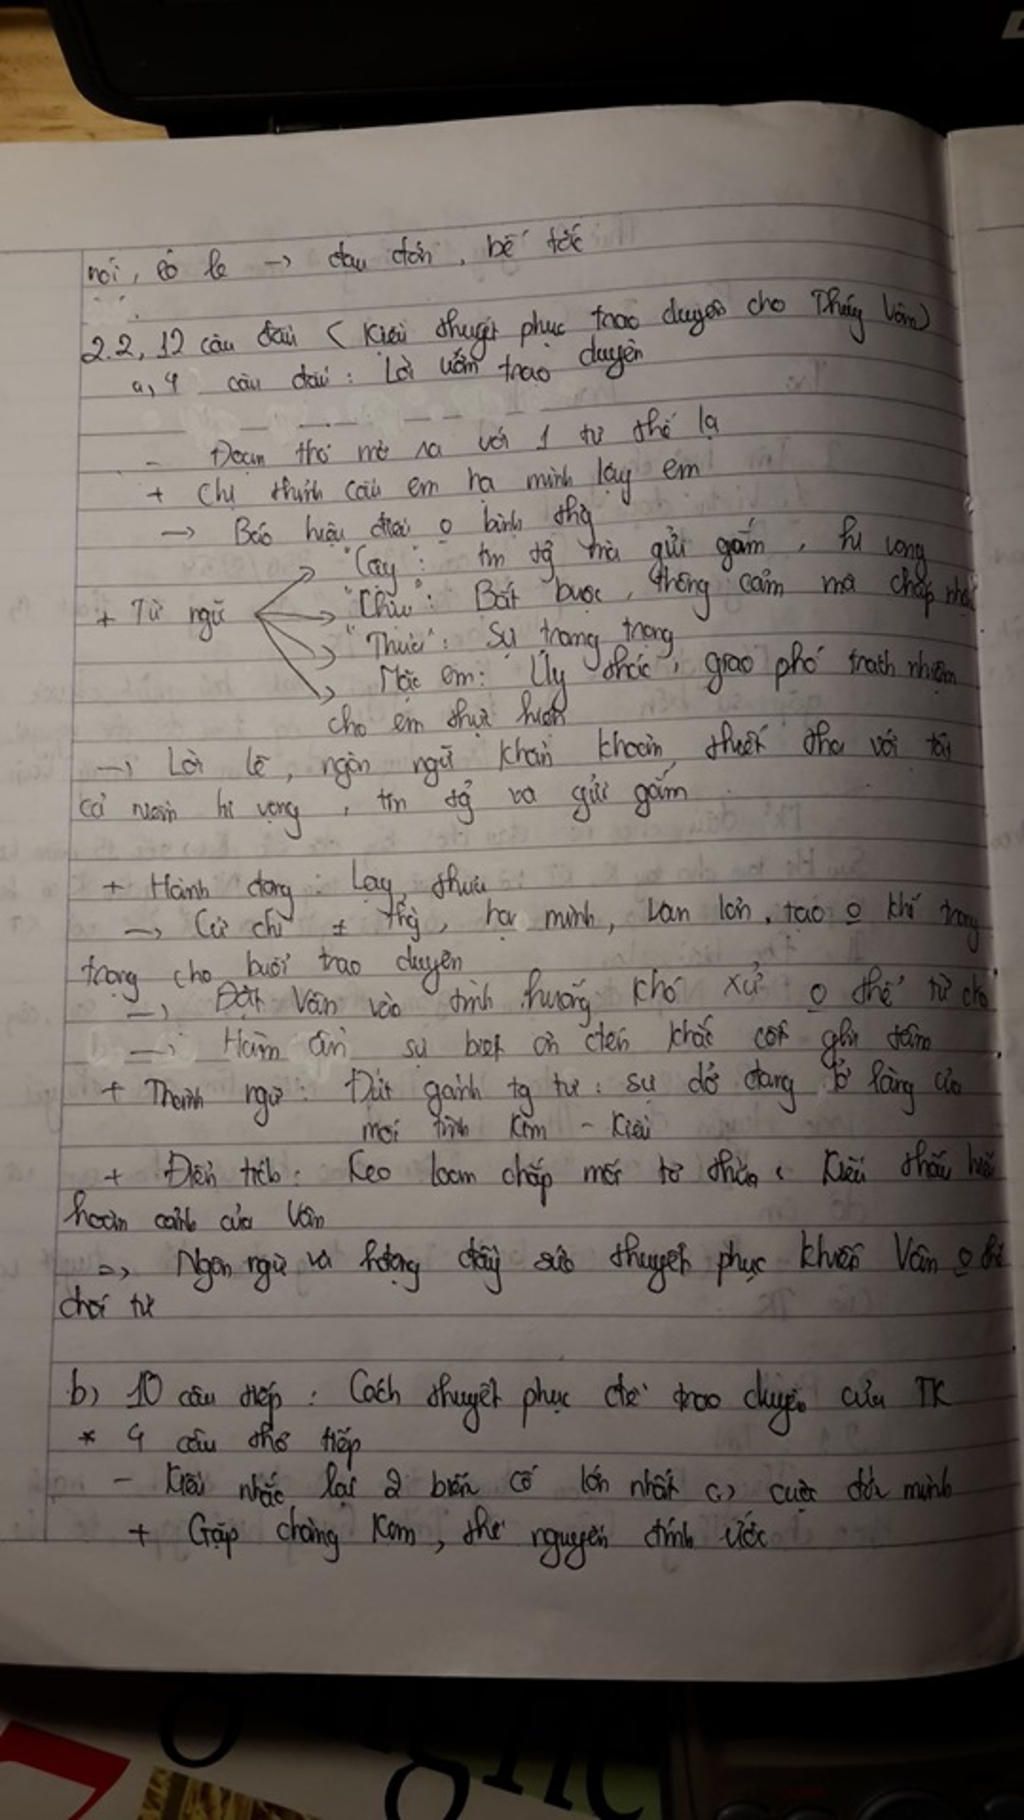 nói, éo le -> đau đớn, bế tắc
2.2, 12 câu đầu (Kiều thuyết phục trao duyên cho Thúy Vân)
a, 4 câu đầu: Lời ướm trao duyên
- Đoạn thơ mở ra với 1 tư thế lạ
+ Chị thỉnh cầu em hạ mình lạy em
-> Báo hiệu điều o bình thg
"Cậy": tin tg mà gửi gắm, hi vọng
+ Từ ngữ "Chịu": Bắt buộc, thông cảm mà chấp nhận
"Thưa": Sự trang trọng
Mặc em: Ủy thác, giao phó trách nhiệm
cho em thực hiện
-> Lời lẽ, ngôn ngữ khẩn khoản thiết tha với tất
cả niềm hi vọng, tin tg và gửi gắm
+ Hành động: Lạy, thưa
-> Cử chỉ ± thg, hạ mình, van lơn, tạo o khí trang
trọng cho buổi trao duyên
-> Đặt Vân vào tình huống khó xử o thể từ chối
-> Hàm ẩn sự biết ơn đến khắc cốt ghi tâm
+ Thành ngữ: Đứt gánh tg tư: sự dở dang lỡ làng của
mối tình Kim - Kiều
+ Điển tích: Keo loan chắp mối tơ thừa: Kiều thấu hiểu
hoàn cảnh của Vân
=> Ngôn ngữ và h/động đầy sức thuyết phục khiến Vân o thể
chối từ
b) 10 câu tiếp: Cách thuyết phục để trao duyên của TK
* 4 câu thơ tiếp
- Kiều nhắc lại 2 biến cố lớn nhất cuộc đời mình
+ Gặp chàng Kim, thề nguyền đính ước
ng